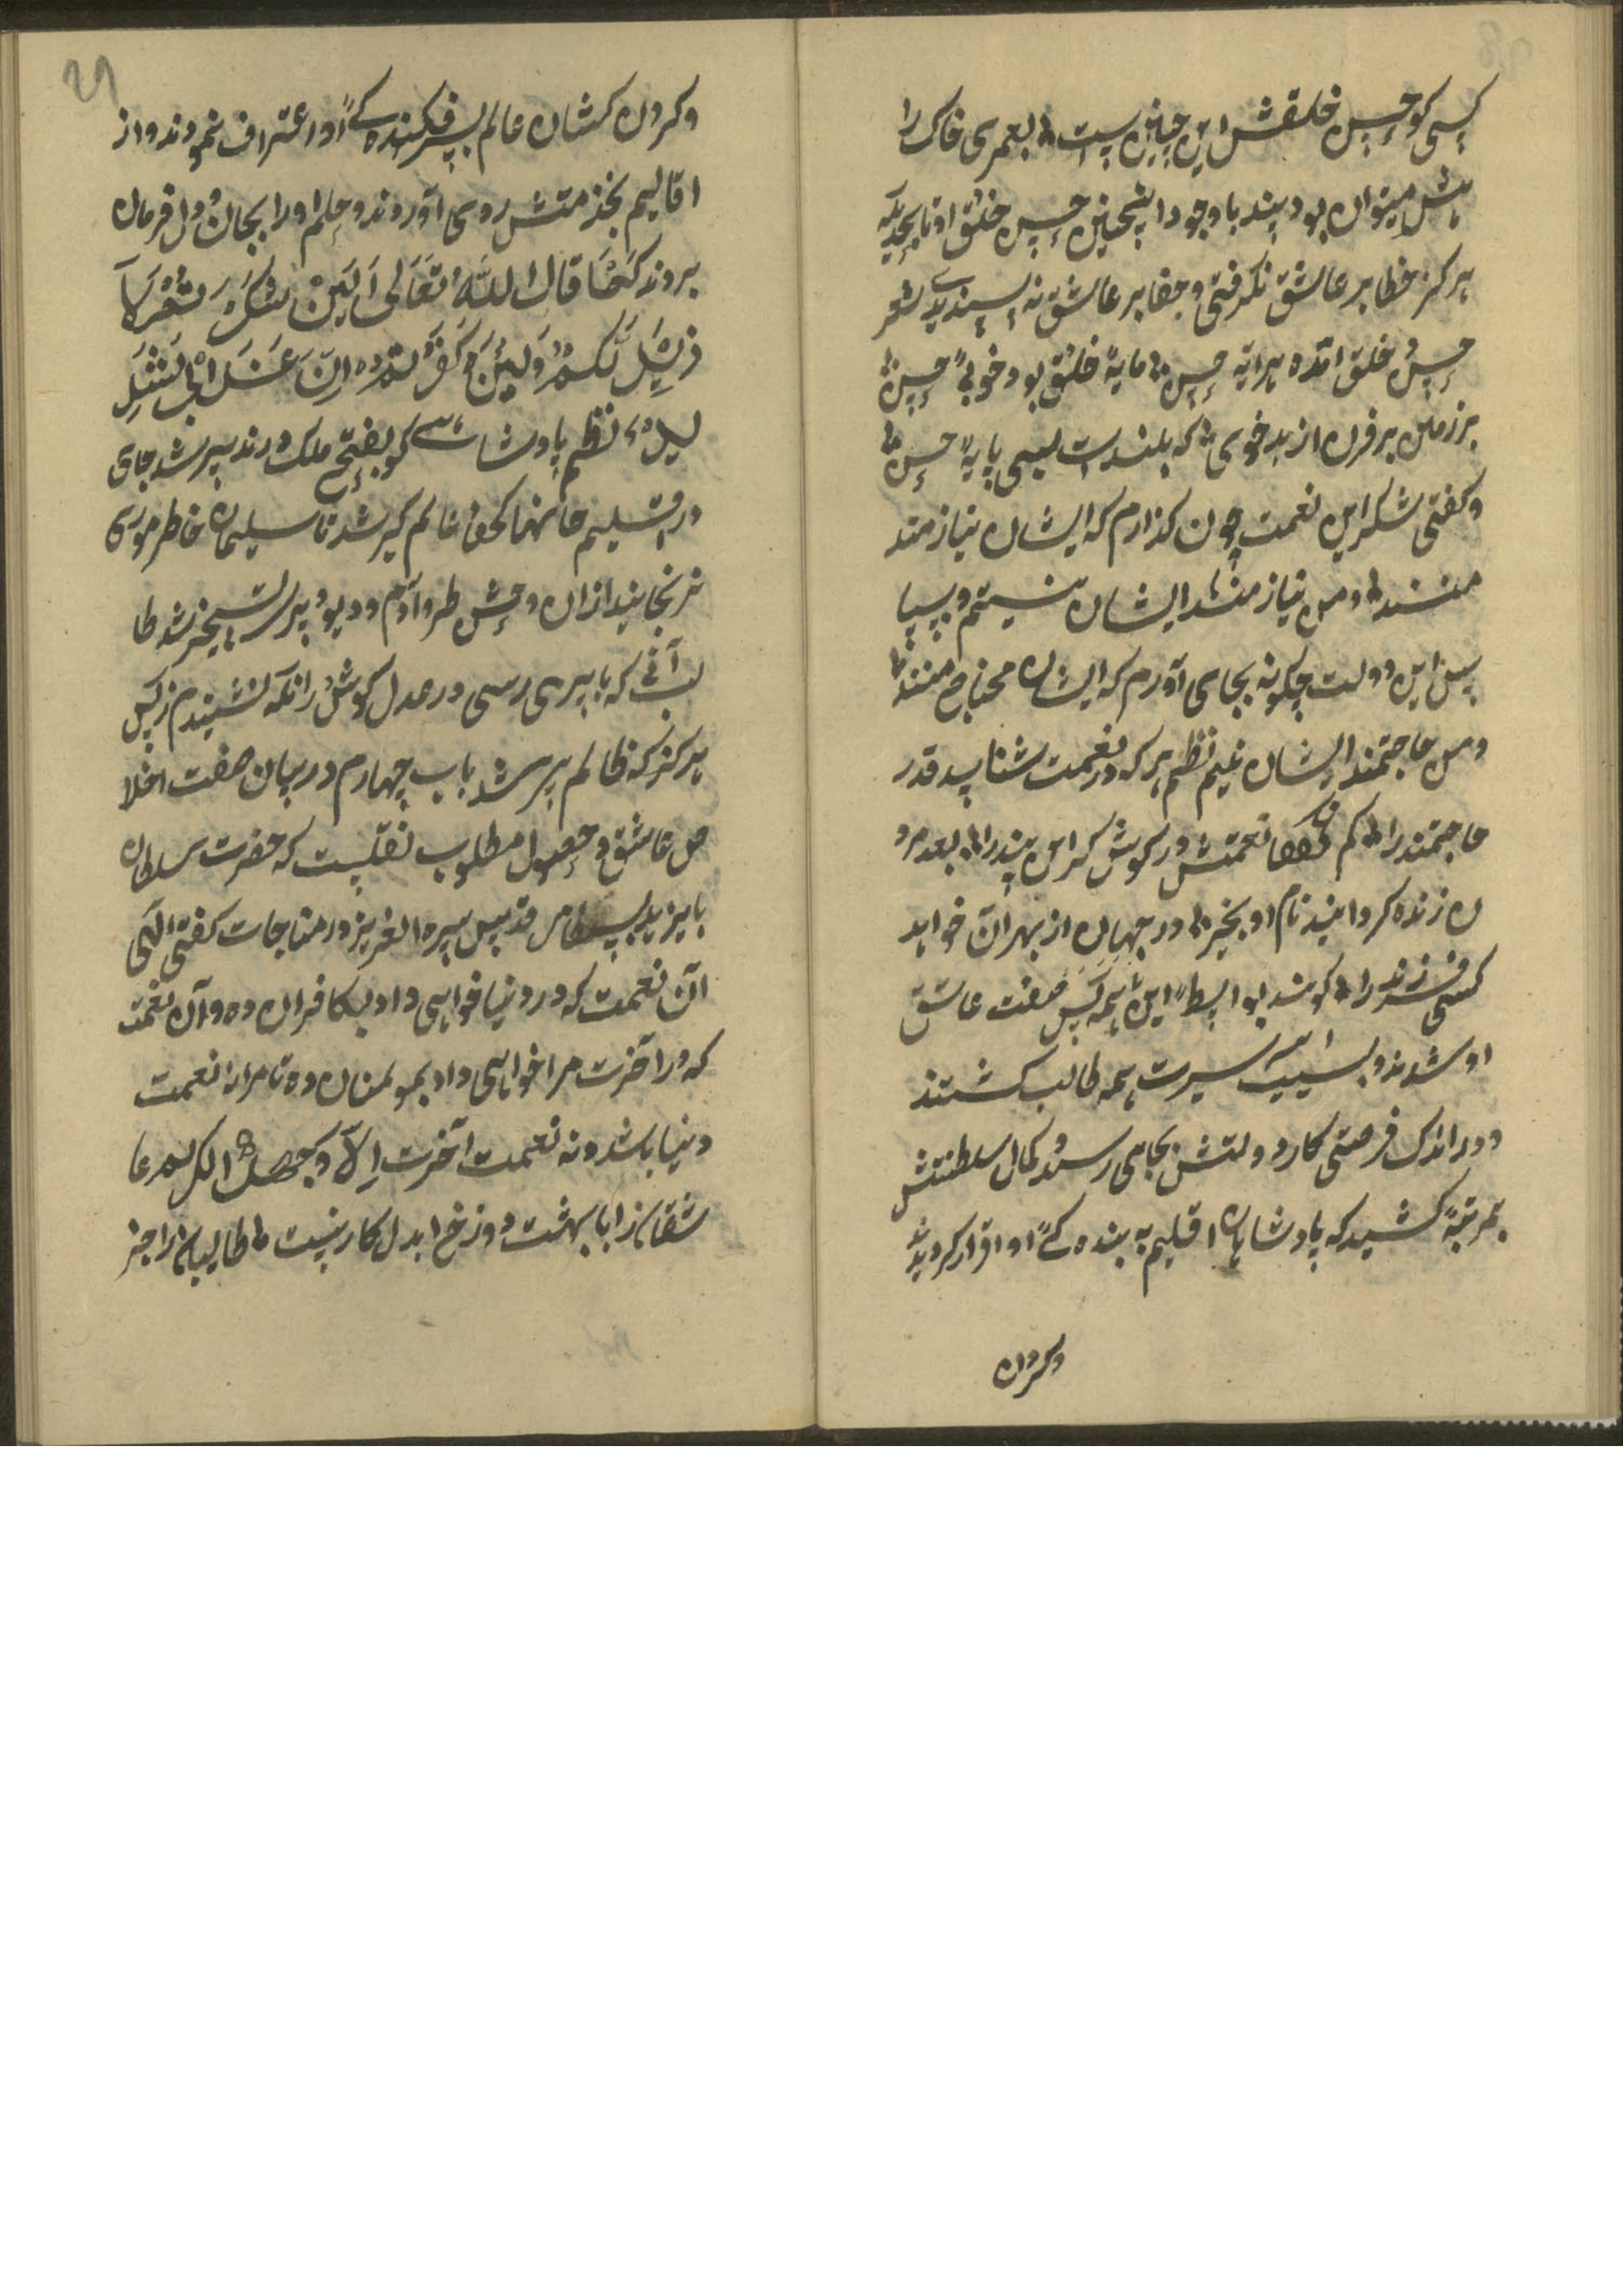 کسی کو حسن خلقش این چنین است بعمری خاک را
هش میتوان بود پسند با وجود اینچنین حسن خلق او تا بحدیکه
هرکز خطا بر عاشق نکرفتی و جفا بر عاشق نه پسندیدی شعر
حسن خلق آمده پیرایه حسن مایهٔ خلق بود خوبیٔ حسن
برزمین بر فرن از بدخوی که بلندست بسی پایهٔ حسن
وکفتی شکر این نعمت چون کذارم که ایشان نیازمند
منند و من نیازمند ایشان نیستم و سپا
س این دولت چکونه بجای آورم که ایشان محتاج منند
و من حاجتمند ایشان نیم نظم هرکه در نعمت شناسد قدر
حاجتمند را کم نعمتش در کوش کر این پند را بعد مرد
ن زنده کرداند نام او بخیر در جهان از بهر آن خواهد
کسی فرزند را کوشد بواسطهٔ این همه کس صفت عاشق
او شدند و بسبب سیرت همه طالب کشتند
و در اندک فرصتی کار دولتش بجایی رسید و کمال سلطنتش
بمرتبهٔ کشید که پادشاهان اقلیم به بنده کیٔ او اقرار کردند
وکردن
29
وکردن کشان عالم بسرفکنده کیٔ او اعتراف نمودند و از
اقالیم بخدمتش روی آوردند و حلم او را بجان و دل فرمان
بردند کما قال الله تعالی لئن شکرتم لا
زیدنکم ولئن کفرتم ان عذابی لشد
ید نظم پادشاهی کو بفتح ملک در تدبیر شد جای
در اقلیم جانها کحق عالم کیر شد تا سلیمان خاطر موری
نرنجانید ازان وحش و طیر و آدم و دیو و پری تسخیر شد طا
لب آنی که با پیری رسی در عدل کوش زانکه نشنیدم ز کس
هرکز که ظالم پیر شد باب چهارم در بیان صفت اخلا
ص عاشق و حصول مطلوب نقلست که حضرت سلطان
بایزید بسطامی قدس سره العزیز در مناجات کفتی الهی
آن نعمت که در دنیا خواهی داد بکافران ده و آن نعمت
که در آخرت مرا خواهی داد بمؤمنان ده تا مرا نه نعمت
دنیا باشد و نه نعمت آخرت الا وجهک الکریم عا
شقانرا با بهشت و دوزخ ابدل کار نیست طالبانرا جز